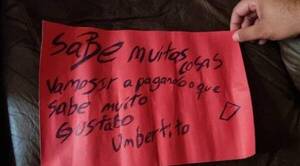 SABE muitas cosas
Vamosir a pagando o que
sabe muito
Gustavo
Umbertito